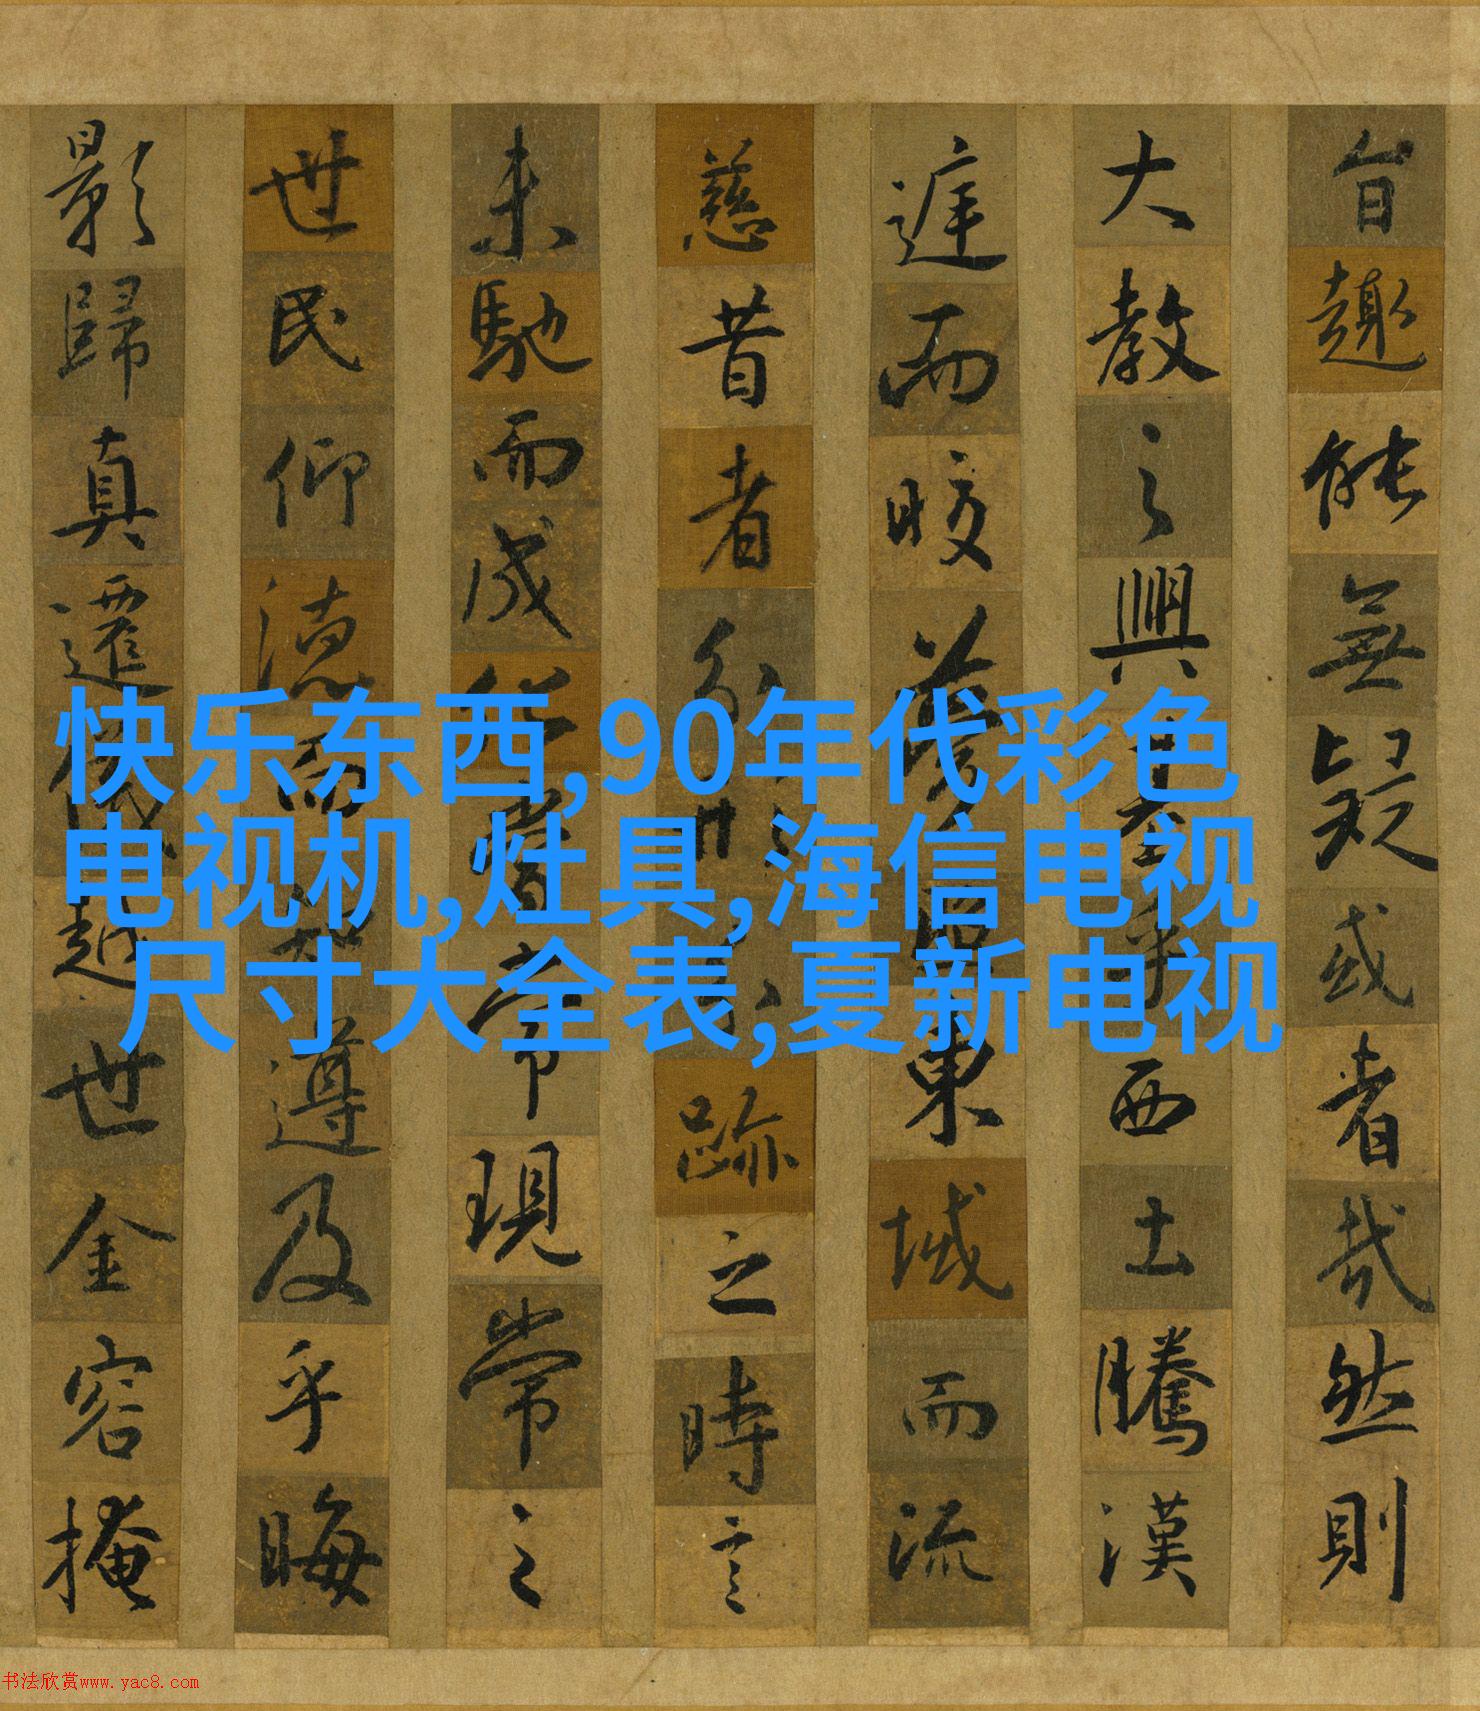 旨趣能無疑或者哉然則
大教之興基乎西土騰漢
庭而皎夢照東域而流
慈昔者分形分跡之時言
未馳而成化當常現常之
世民仰德而知遵及乎晦
影歸真遷儀越世金容掩
快乐东西,90年代彩色
电视机,灶具,海信电视
尺寸大全表,夏新电视
书法欣赏www.yac8.com